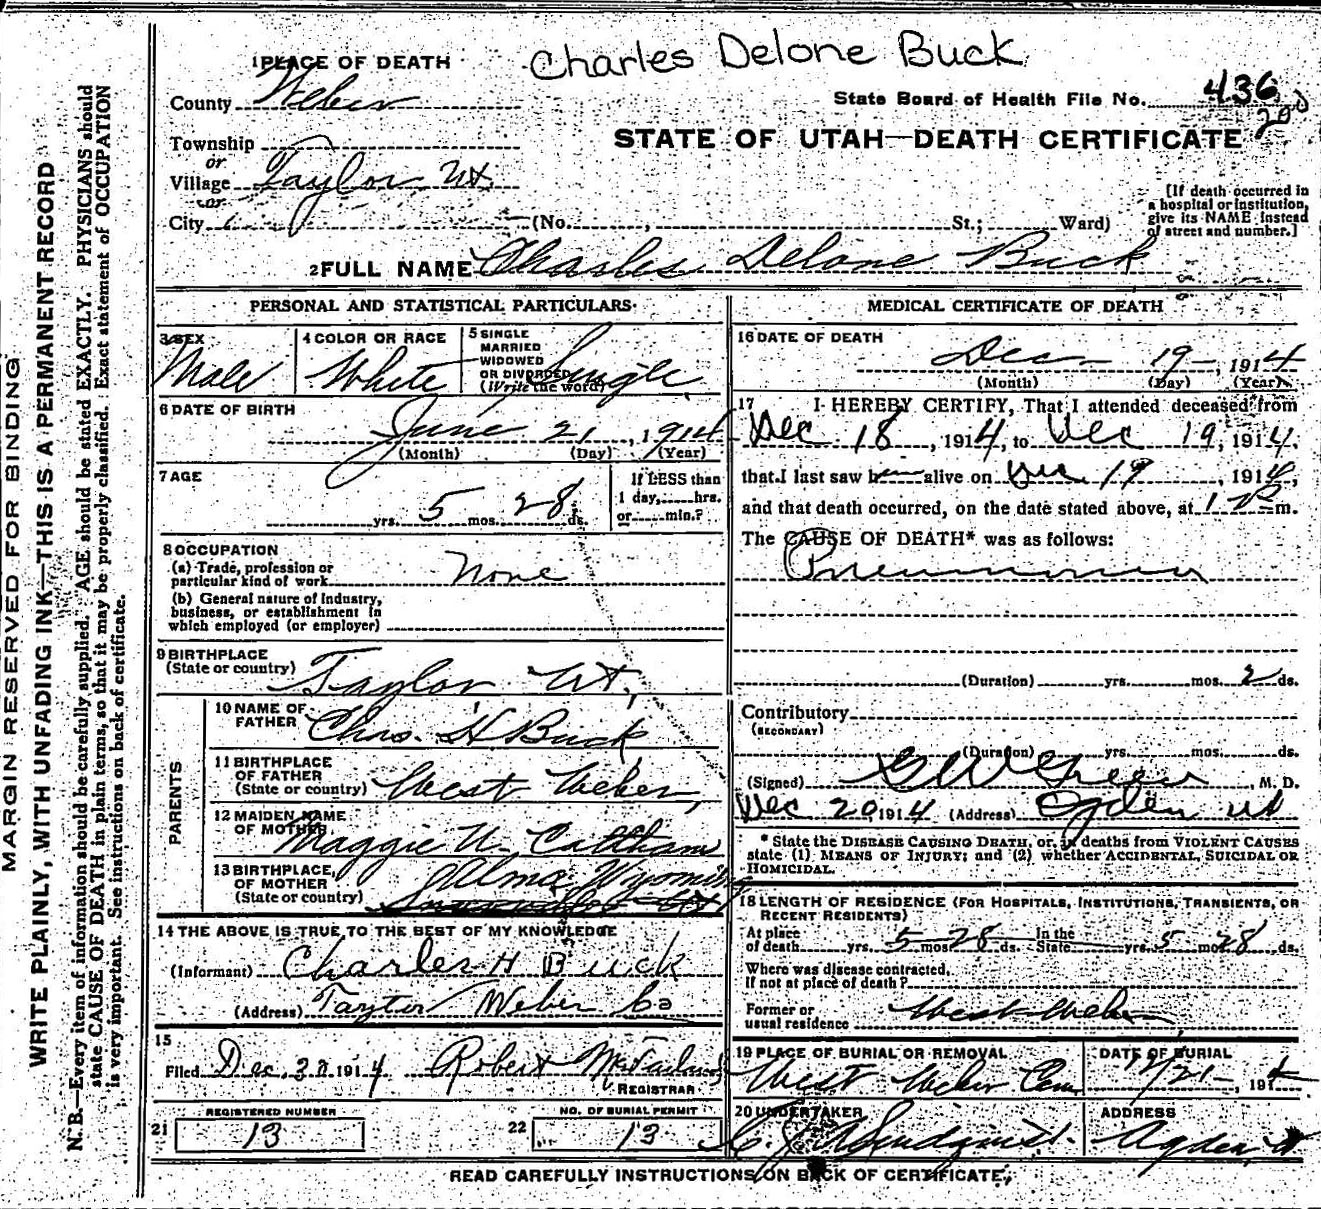 Charles Delone Buck
1 PLACE OF DEATH
County Weber
State Board of Health File No. 436
200
STATE OF UTAH—DEATH CERTIFICATE
Township
or
Village Taylor Ut.
or
City (No. , St.; Ward)
[If death occurred in
a hospital or institution,
give its NAME instead
of street and number.]
2 FULL NAME Charles Delone Buck
PERSONAL AND STATISTICAL PARTICULARS
3 SEX
Male
4 COLOR OR RACE
White
5 SINGLE
MARRIED
WIDOWED
OR DIVORCED
(Write the word)
Single
6 DATE OF BIRTH
June 21, 1914
(Month) (Day) (Year)
7 AGE
yrs. 5 mos. 28 ds.
If LESS than
1 day, hrs.
or min.?
8 OCCUPATION
(a) Trade, profession or
particular kind of work None
(b) General nature of Industry,
business, or establishment in
which employed (or employer)
9 BIRTHPLACE
(State or country) Taylor Ut,
PARENTS
10 NAME OF
FATHER Chas. H Buck
11 BIRTHPLACE
OF FATHER
(State or country) West Weber,
12 MAIDEN NAME
OF MOTHER Maggie
13 BIRTHPLACE
OF MOTHER
(State or country) Alma, Wyoming
14 THE ABOVE IS TRUE TO THE BEST OF MY KNOWLEDGE
(Informant) Charles H Buck
(Address) Taylor Weber Co
15
Filed Dec, 1914 Robert
REGISTRAR
REGISTERED NUMBER
21 13
NO. OF BURIAL PERMIT
22 13
MEDICAL CERTIFICATE OF DEATH
16 DATE OF DEATH
Dec 19, 1914
(Month) (Day) (Year)
17 I HEREBY CERTIFY, That I attended deceased from
Dec 18, 1914, to Dec 19, 1914,
that I last saw h alive on Dec 19, 1914,
and that death occurred, on the date stated above, at 1 P m.
The CAUSE OF DEATH* was as follows:
Pneumonia
(Duration) yrs. mos. 2 ds.
Contributory
(SECONDARY)
(Duration) yrs. mos. ds.
(Signed) G W Green, M. D.
Dec 20 1914 (Address) Ogden Ut
* State the DISEASE CAUSING DEATH, or, in deaths from VIOLENT CAUSES
state (1) MEANS OF INJURY; and (2) whether ACCIDENTAL, SUICIDAL OR
HOMICIDAL.
18 LENGTH OF RESIDENCE (FOR HOSPITALS, INSTITUTIONS, TRANSIENTS, OR
RECENT RESIDENTS)
At place
of death yrs. 5 mos. 28 ds. In the
State yrs. 5 mos. 28 ds.
Where was disease contracted,
If not at place of death?
Former or
usual residence West Weber
19 PLACE OF BURIAL OR REMOVAL
West Weber Cem
DATE OF BURIAL
12/21, 1914
20 UNDERTAKER
ADDRESS
Ogden, Ut
READ CAREFULLY INSTRUCTIONS ON BACK OF CERTIFICATE.
MARGIN RESERVED FOR BINDING
WRITE PLAINLY, WITH UNFADING INK—THIS IS A PERMANENT RECORD
N. B.—Every item of information should be carefully supplied. AGE should be stated EXACTLY. PHYSICIANS should
state CAUSE OF DEATH in plain terms, so that it may be properly classified. Exact statement of OCCUPATION
is very important. See instructions on back of certificate.